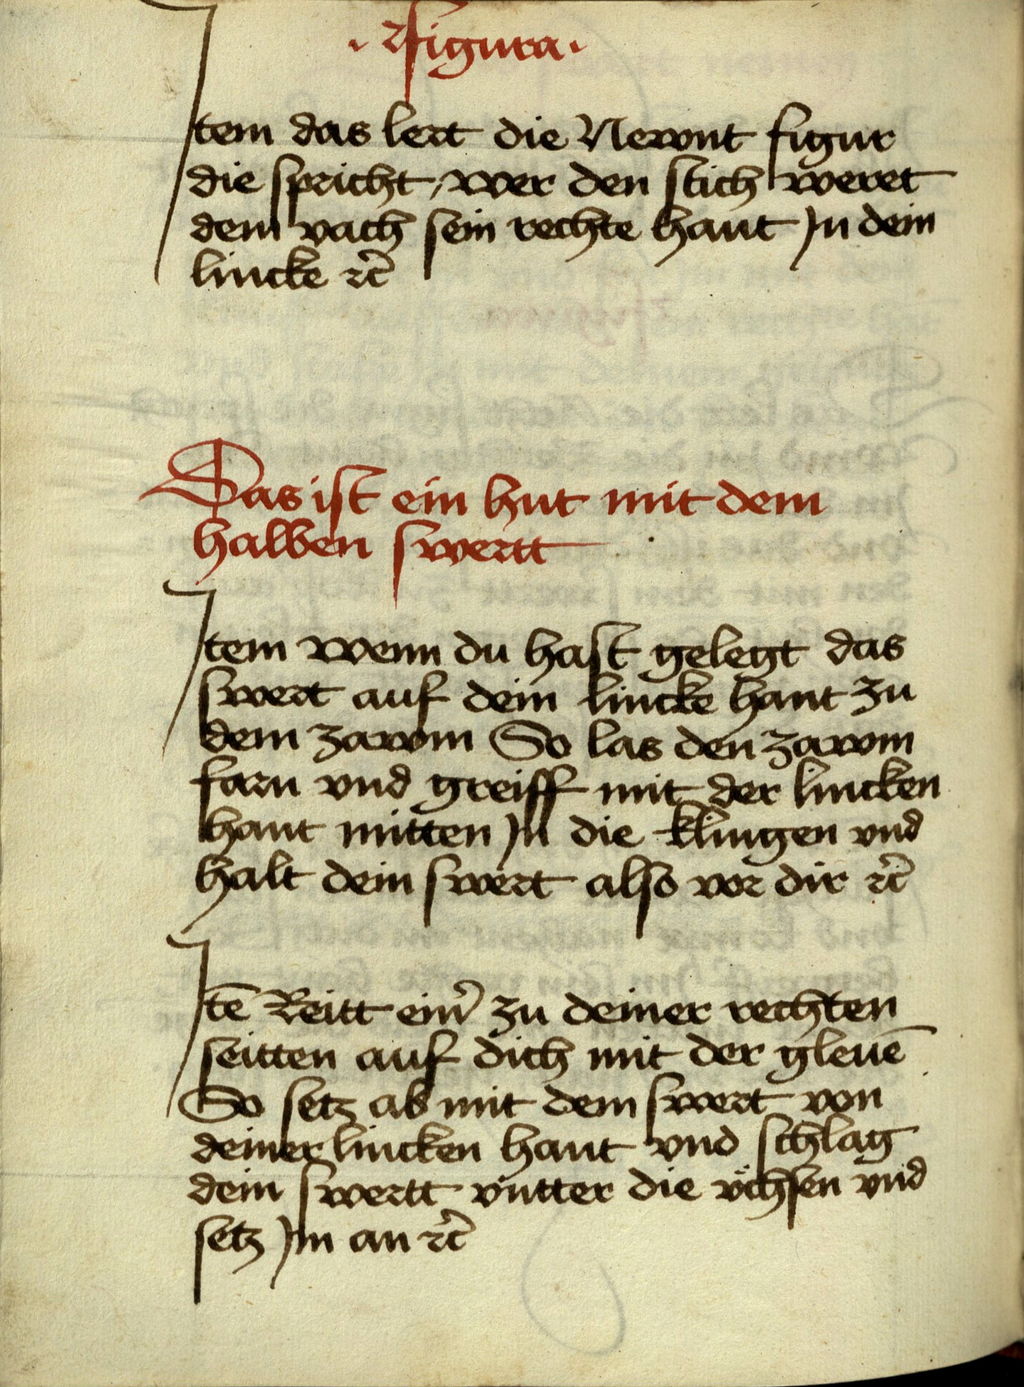 · Figura ·
Item das lert die Newnt figur
die spricht / wer den stich weret
dem vach sein rechte hant Jn dein
lincke rc̃
Das ist ein hut mit dem
halben swertt
Item wenn du hast gelegt das
swert auf dein lincke hant zu
dem zawm So las den zawm
farn vnd greiff mit der lincken
hant mitten Jn die klingen vnd
halt dein swert also vor dir rc̃
Itẽ Reitt ein̾ zu deiner rechten
seitten auf dich mit der gleuẽ
So setz ab mit dem swert von
deiner lincken hant vnd schlag
dein swertt vntter die v̈chsen vnd
setz Jm an rc̃